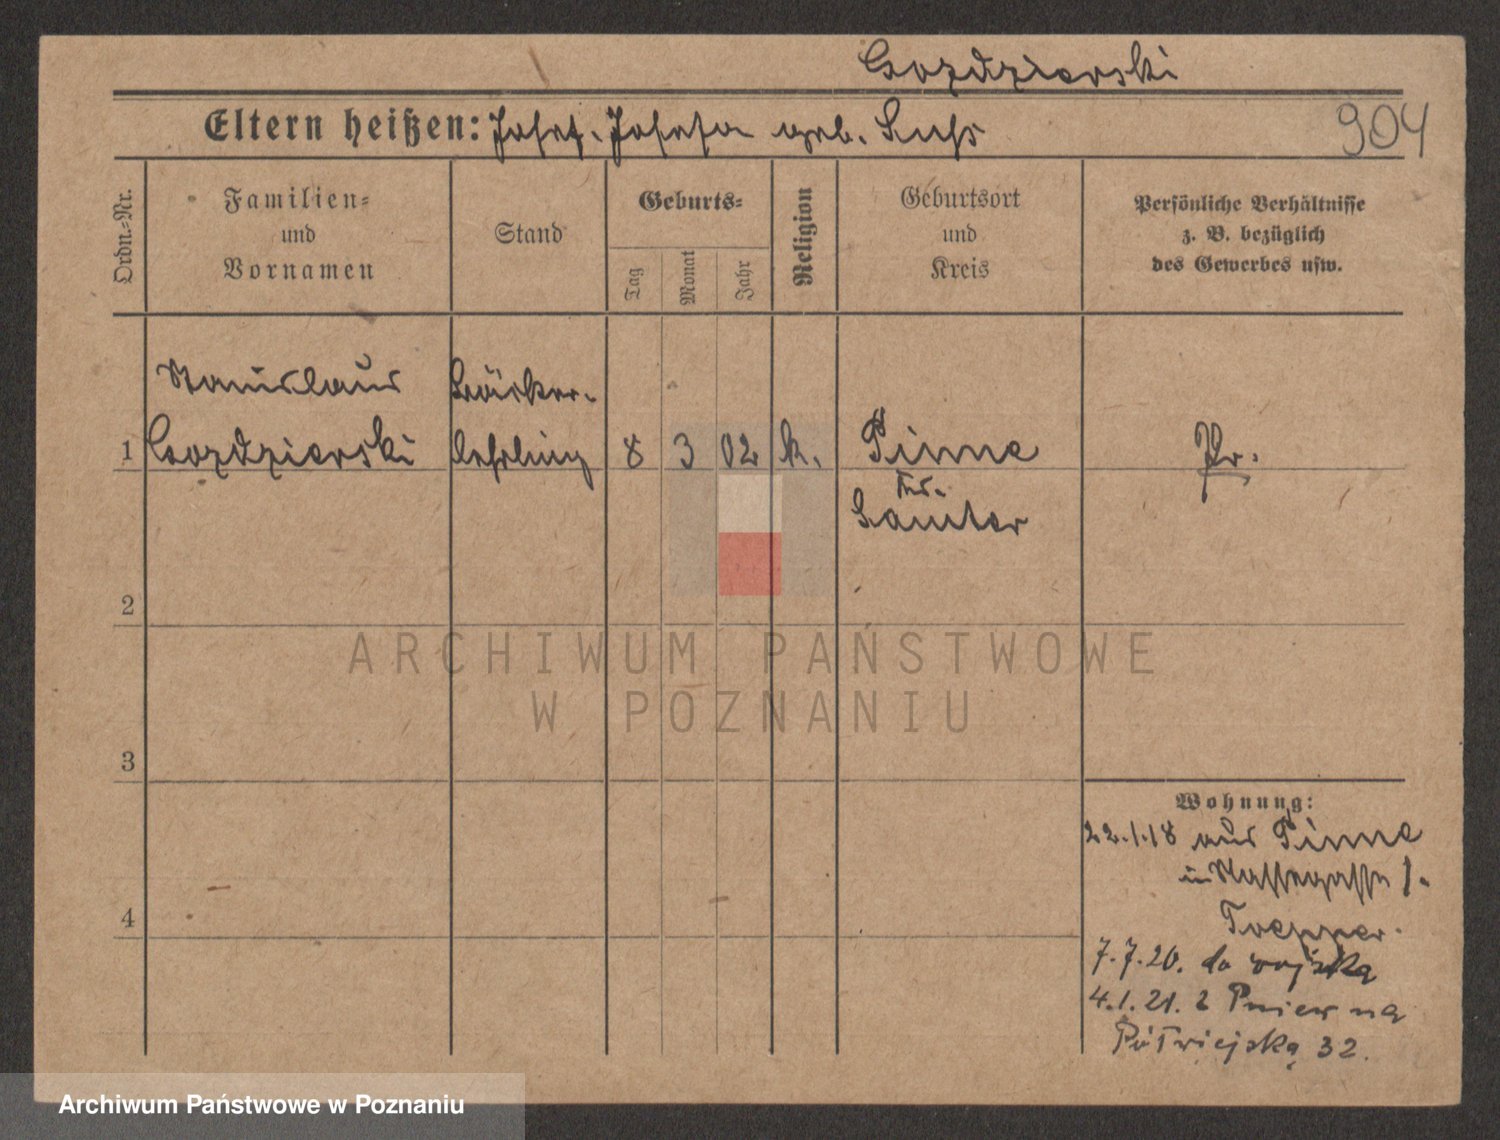 Gozdzierski
Eltern heißen: Josef. Josefa geb. Suhs
904
Ordn.-Nr.
Familien-
und
Vornamen
Stand
Geburts-
Tag
Monat
Jahr
Religion
Geburtsort
und
Kreis
Persönliche Verhältnisse
z. B. bezüglich
des Gewerbes usw.
Stanislaus Bäcker-
1 Gozdzierski lehrling 8 3 02 k. Pinne Pr.
Kr.
Samter
2
ARCHIWUM PAŃSTWOWE
W POZNANIU
3
Wohnung:
22.1.18 aus Pinne
in Wassergasse 1.
4
Toepper.
7.7.20. do wojska
4.1.21. z Pniew na
Półwiejską 32.
Archiwum Państwowe w Poznaniu